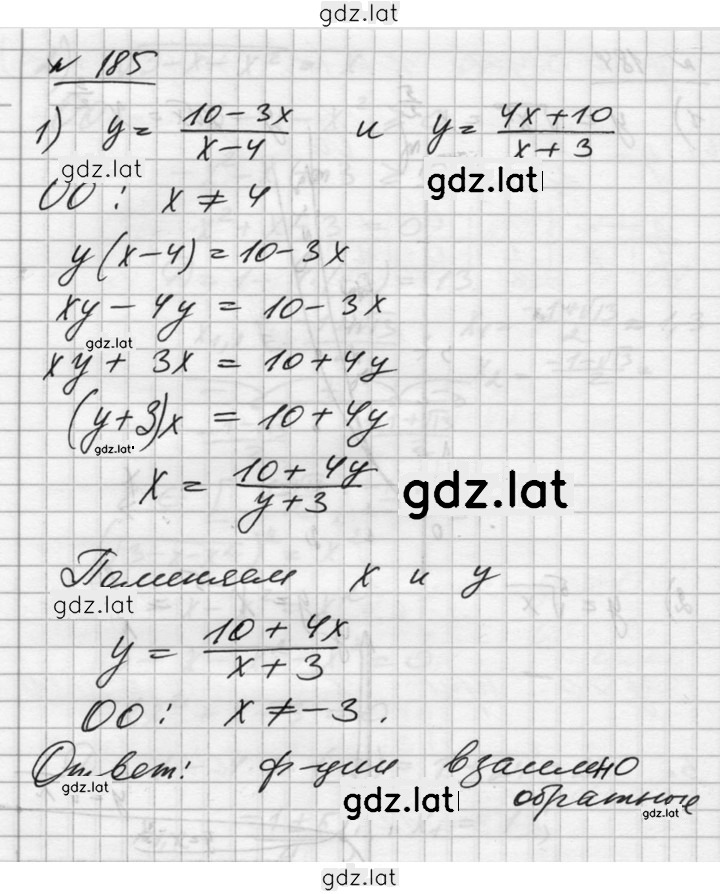 gdz.lat
№ 185
1) y = (10-3x)/(x-4) и y = (4x+10)/(x+3)
gdz.lat gdz.lat
ОО: x ≠ 4
y(x-4) = 10-3x
xy - 4y = 10-3x
gdz.lat
xy + 3x = 10+4y
(y+3)x = 10+4y
gdz.lat
x = (10+4y)/(y+3)
gdz.lat
Поменяем x и y
gdz.lat
y = (10+4x)/(x+3)
ОО: x ≠ -3.
Ответ: ф-ции взаимно
gdz.lat
обратные
gdz.lat gdz.lat
gdz.lat